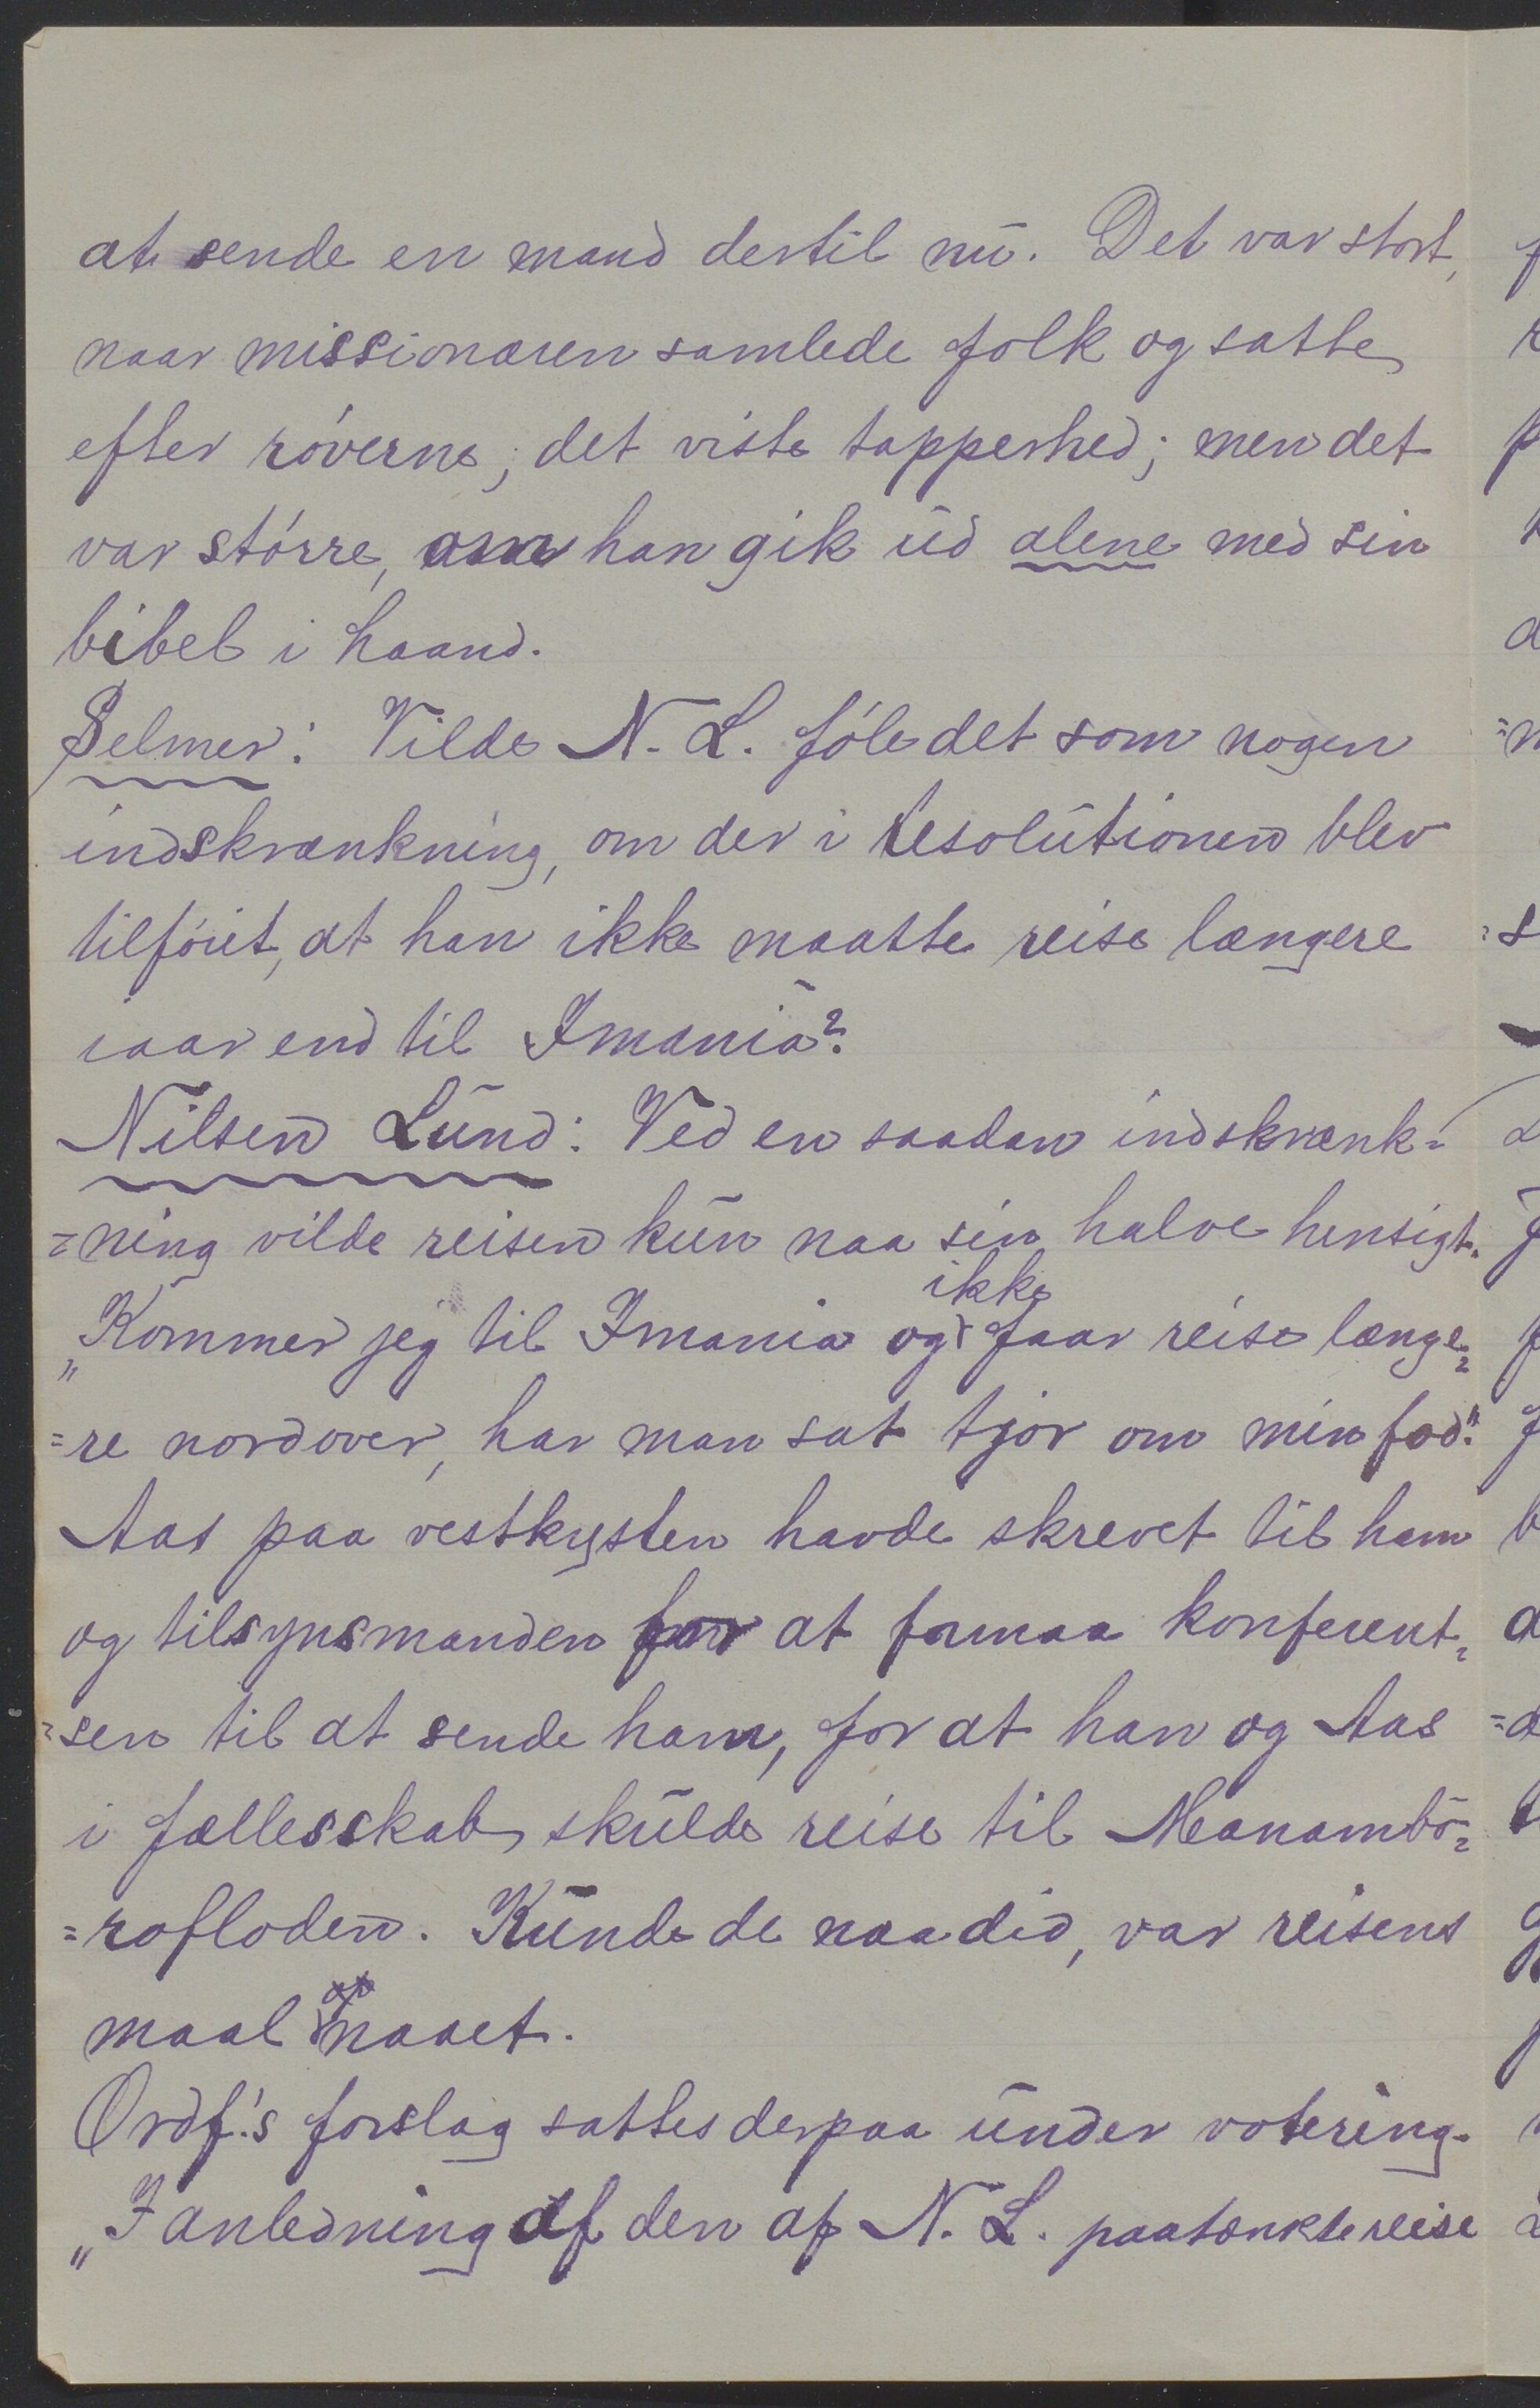 at sende en mand dertil nu. Det var stort,
naar missionæren samlede folk og satte
efter røverne, det viste tapperhed; men det
var større, om han gik ud alene med sin
bibel i haand.
Selmer: Vilde N. L. føle det som nogen
indskrænkning, om der i resolutionen blev
tilføiet, at han ikke maatte reise længere
iaar end til Imania?
Nilsen Lund: Ved en saadan indskrænk=
=ning vilde reisen kun naa sin halve hensigt.
„Kommer jeg til Imania og ikke faar reise længe=
=re nordover, har man sat tjor om min fod."
Aas paa vestkysten havde skrevet til ham
og tilsynsmanden for at formaa konferent=
=sen til at sende ham, for at han og Aas
i fællesskab skulde reise til Manambo=
=rofloden. Kunde de naa did, var reisens
maal opnaaet.
Ordf.'s forslag sattes derpaa under votering.
„I anledning af den af N. L. paatænkte reise